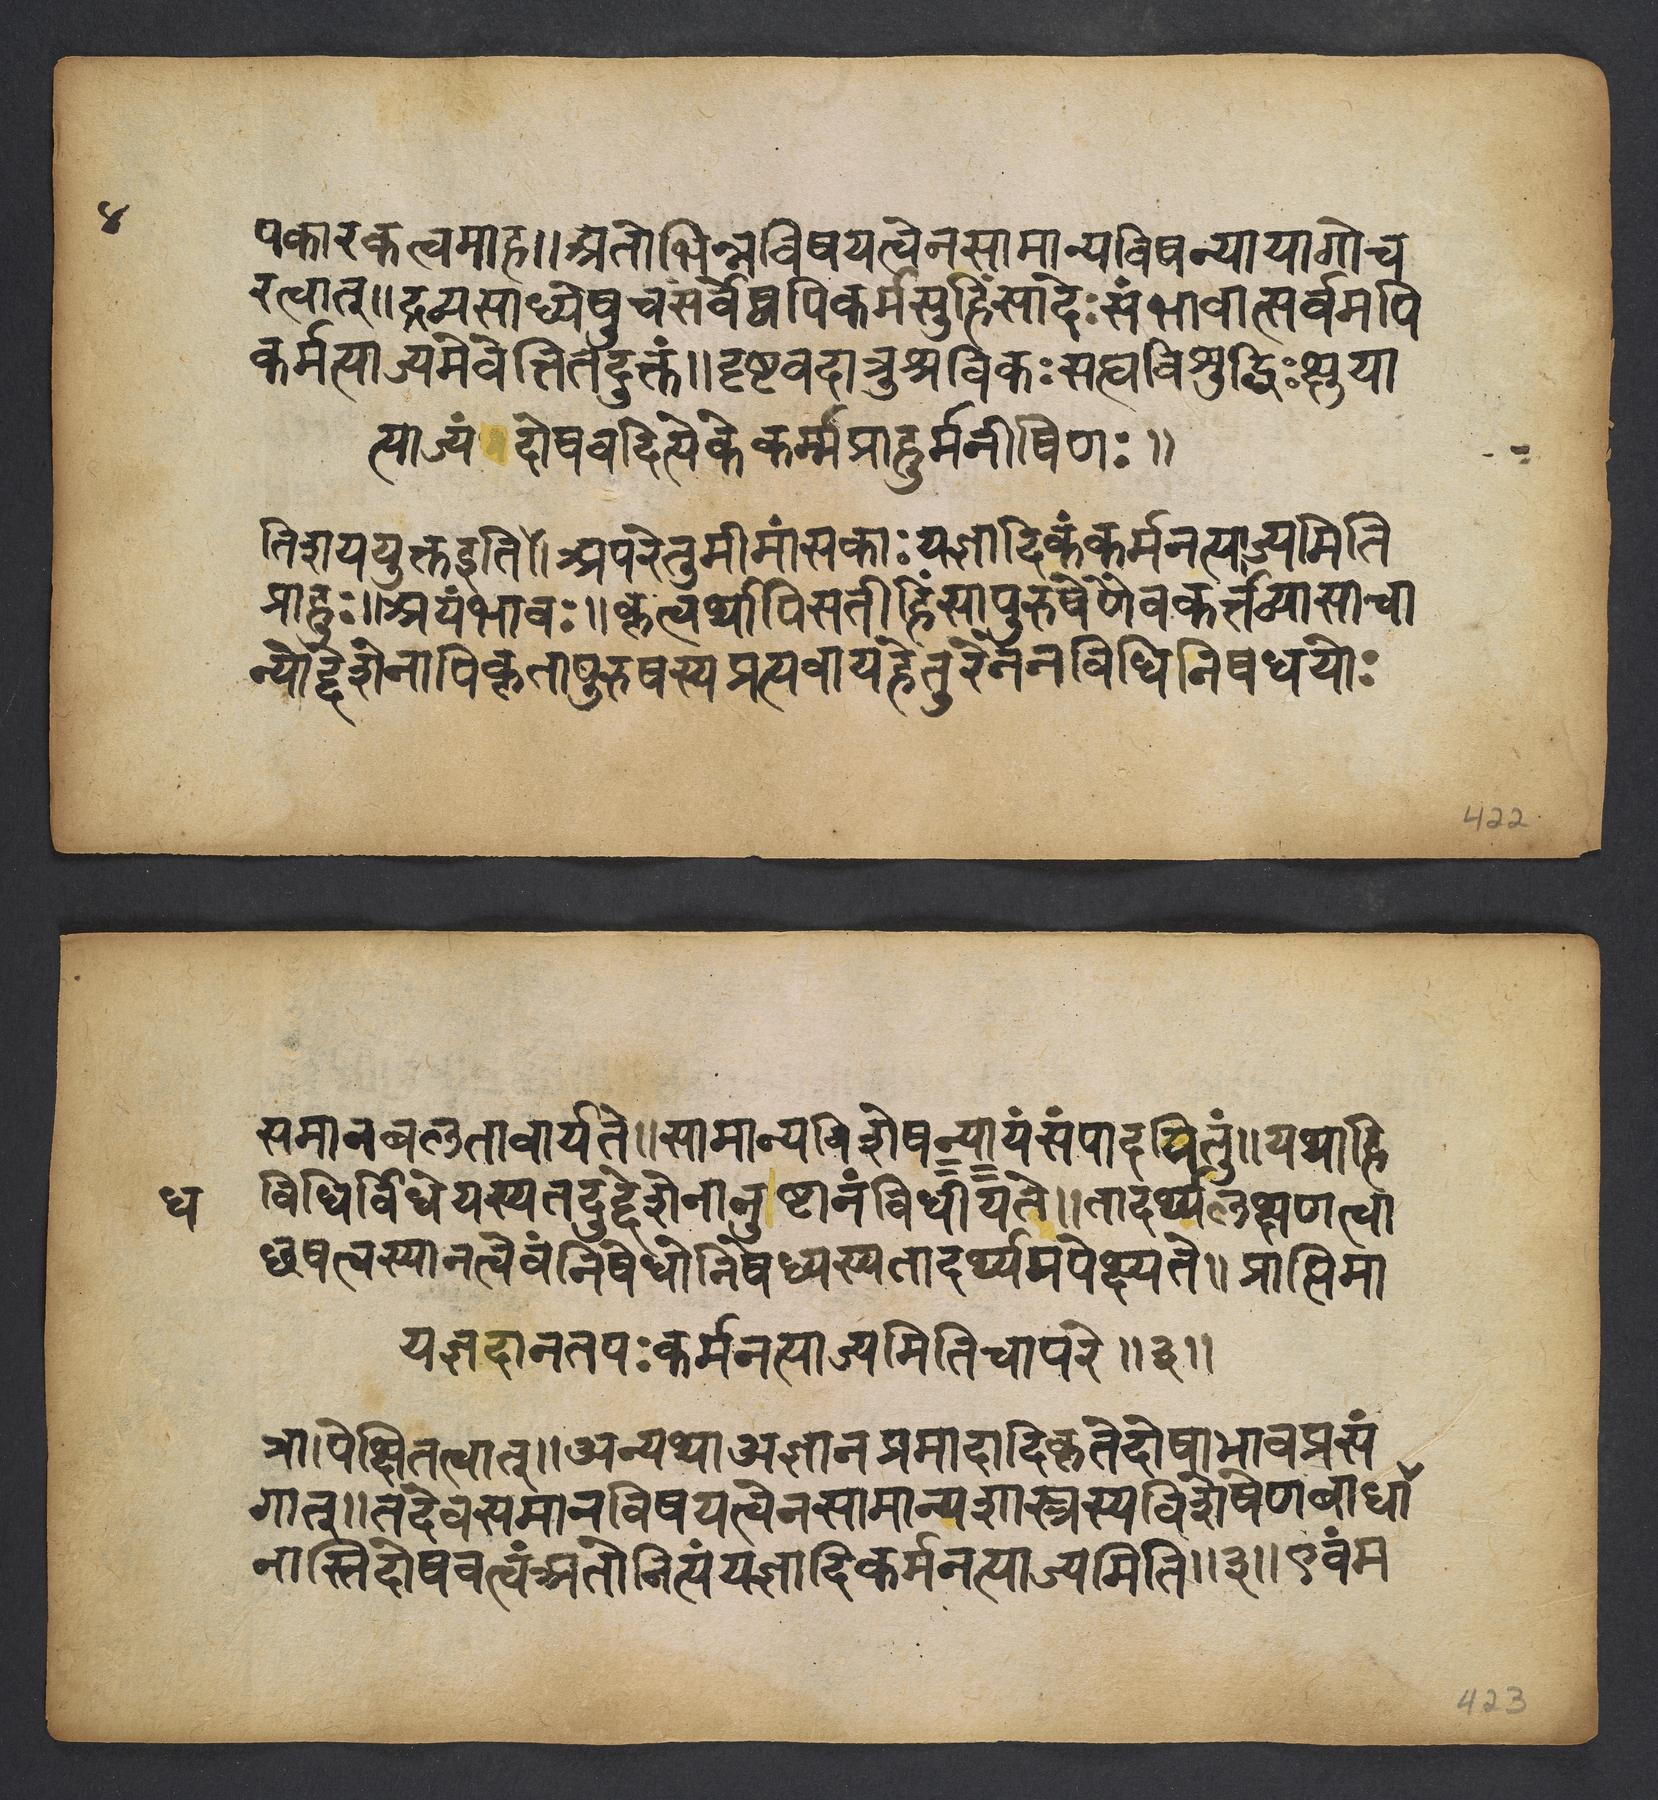 ४
पकारकत्वमाह॥अतोभिन्नविषयत्वेनसामान्यविषन्यायागोच
रत्वात्॥द्रव्यसाध्येषुचसर्वेष्वपिकर्मसुहिंसादेःसंभावात्सर्वमपि
कर्मत्याज्यमेवेत्तितदुक्तं॥दृष्टवदानुश्रविकःसह्यविशुद्धिःक्षुया
त्याज्यं दोषवदित्येके कर्म्मप्राहुर्मनीषिणः॥
तिशययुक्तइति॥अपरेतुमीमांसकाःयज्ञादिकंकर्मनत्याज्यमिति
प्राहुः॥अयंभावः॥क्रत्वर्थापिसतीहिंसापुरुषेणैवकर्त्तव्यासाचा
न्योद्देशेनापिकृतापुरुषस्यप्रत्यवायंहेतुरेनेनविधिनिषधयोः
422
समानबलतावार्यते॥सामान्यविशेषन्यायंसंपादयितुं॥यथाहि
ध
विधिर्विधेयस्यतदुद्देशेनानुष्टानंविधीयते॥तादर्थ्यलक्षणत्वा
छेषत्वस्यानत्वेवंनिषेधोनिषेध्यस्यतादर्थ्यमपेक्ष्यते॥प्राप्तिमा
यज्ञदानतपःकर्मनत्याज्यमितिचापरे॥३॥
त्रा।पेक्षितत्वात्॥अन्यथाअज्ञानप्रमादादिकृतेदोषाभावप्रसं
गात्॥तदेवसमानविषयत्वेनसामान्यशास्त्रस्यविशेषेणबाधो
नास्तिदोषवत्वंअतोनित्यंयज्ञादिकर्मनत्याज्यमिति॥३॥एवंम
423